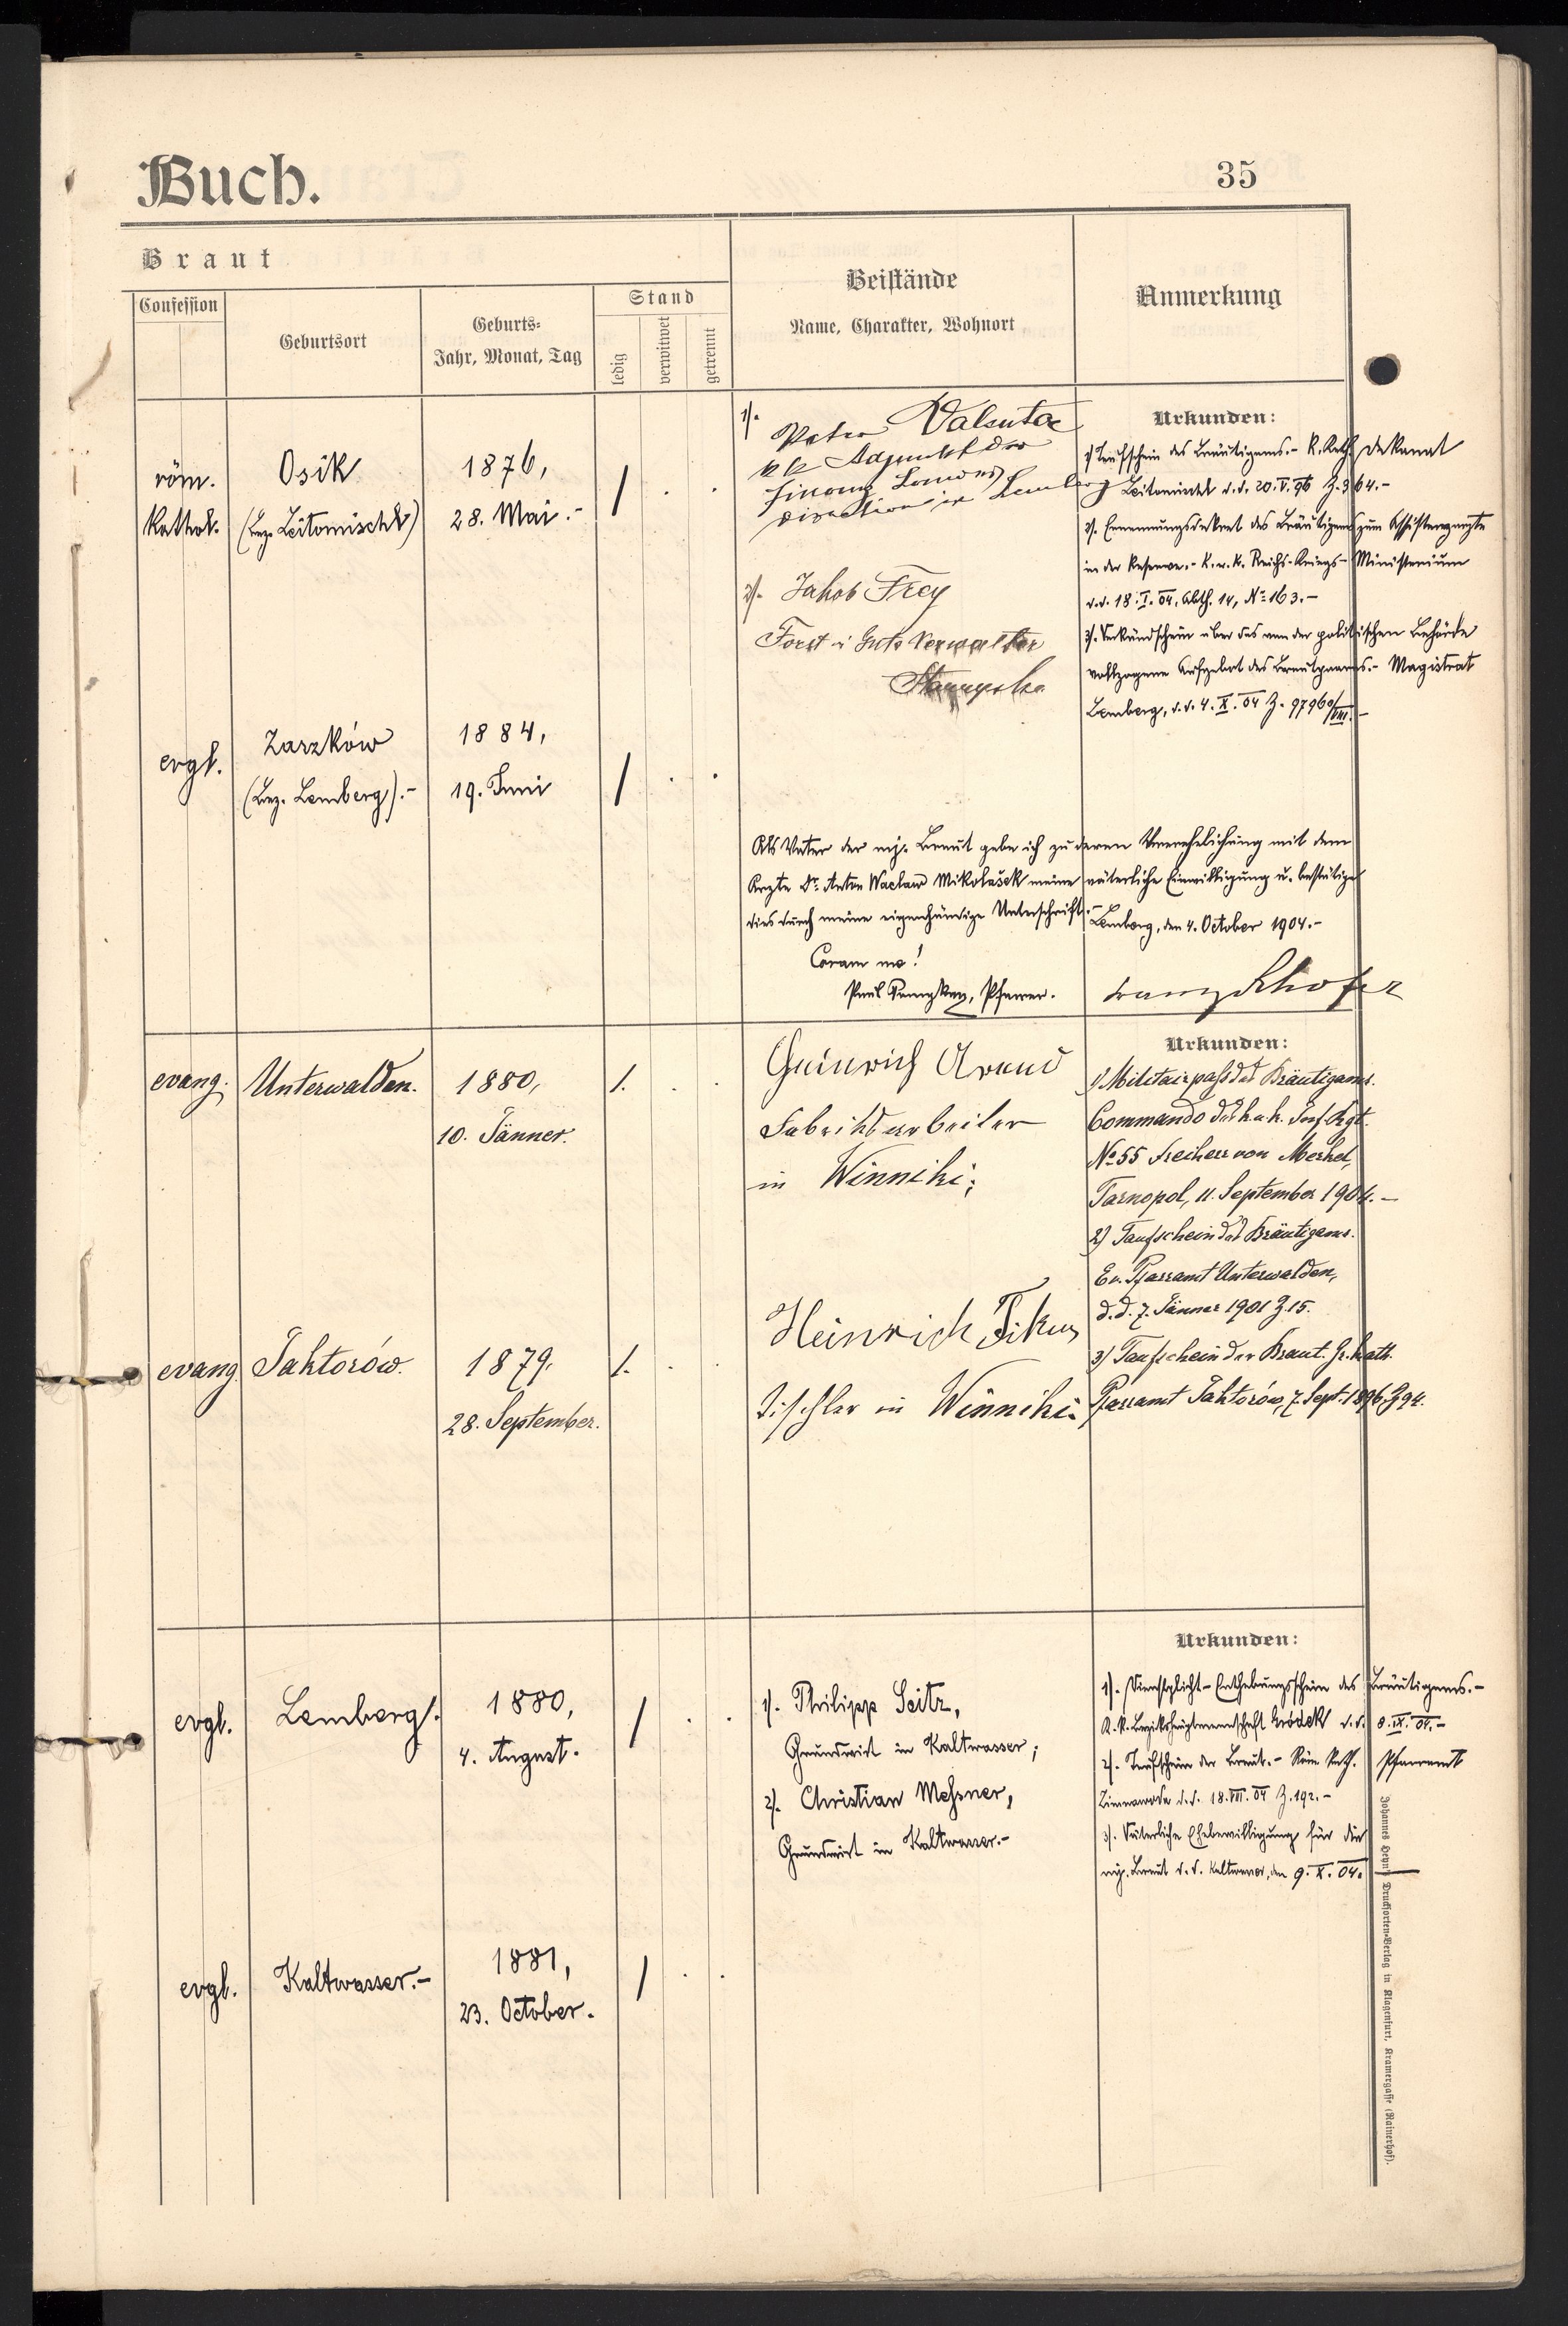 Buch.
35
Braut
Confession
Geburtsort
Geburts-
Jahr, Monat, Tag
Stand
ledig
verwitwet
getrennt
Beistände
Name, Charakter, Wohnort
Anmerkung
röm.
kathol.
Osik
(Bez. Leitomischl)
1876,
28. Mai.-
/ . .
1).
Valenta
kk Adjunkt der
direction in Lemberg
2). Jakob Frey
Forst u Guts Verwalter
Urkunden:
1) Taufschein des Bräutigams.- R. Kath. Dekanat
Leitomischl d.d. 20.V.96 Z. 364.-
2). Ernennungsdekret des Bräutigams zum Assistenzarzte
in der Reserve.- K.u.K. Reichs-Kriegs-Ministerium
d.d. 18.I.04, Abth. 14, No 163.-
3). Verkündschein über das von der politischen Behörde
vollzogene Aufgebot des Brautpaares.- Magistrat
Lemberg, d.d. 4.X.04 Z. 97960/VIII.-
evgl.
Zarzków
(Bez. Lemberg).-
1884,
19. Juni
/ . .
Als Vater der mj. Braut gebe ich zu deren Verehelichung mit dem
Arzte Dr. Anton Wacław Mikolašek meine väterliche Einwilligung u. bestätige
dies durch meine eigenhändige Unterschrift.-
Lemberg, den 4. October 1904.-
Coram me!
Paul Pfarrer.
evang.
Unterwalden.
1880,
10. Jänner.
/. . .
Heinrich Arend
Fabriksarbeiter
in Winniki;
Urkunden:
1) Militairpaß des Bräutigams.
Commando des k.u.k. Inf. Rgt.
No 55 Freiherr von Merkel,
Tarnopol, 11. September 1904.-
2) Taufschein des Bräutigams.
Ev. Pfarramt Unterwalden,
d.d. 7. Jänner 1901 Z. 15.
3) Taufschein der Braut. Gr. kath.
Pfarramt Jaktorów, 7. Sept. 1896 Z 94.
evang.
Jaktorów.
1879.
28. September.
/. . .
Heinrich
Tischler in Winniki.
evgl.
Lemberg.
1880,
4. August.
/ . .
1). Philipp Seitz,
Grundwirt in Kaltwasser;
2). Christian Meßner,
Grundwirt in Kaltwasser.-
Urkunden:
1). Dienstpflicht-Enthebungsschein des Bräutigams.-
K.k. Bezirkshauptmannschaft Gródek d.d. 8.IX.04.-
2). Taufschein der Braut.- Röm. Kath. Pfarramt
Zimnawoda d.d. 18.VIII.04 Z. 192.-
3). Väterliche Ehebewilligung für die
mj. Braut d.d. Kaltwasser, den 9.X.04.
evgl.
Kaltwasser.-
1881,
23. October.
/ . .
Johannes Heyn's Drucksorten-Verlag in Klagenfurt, Kramergasse (Rainerhof).